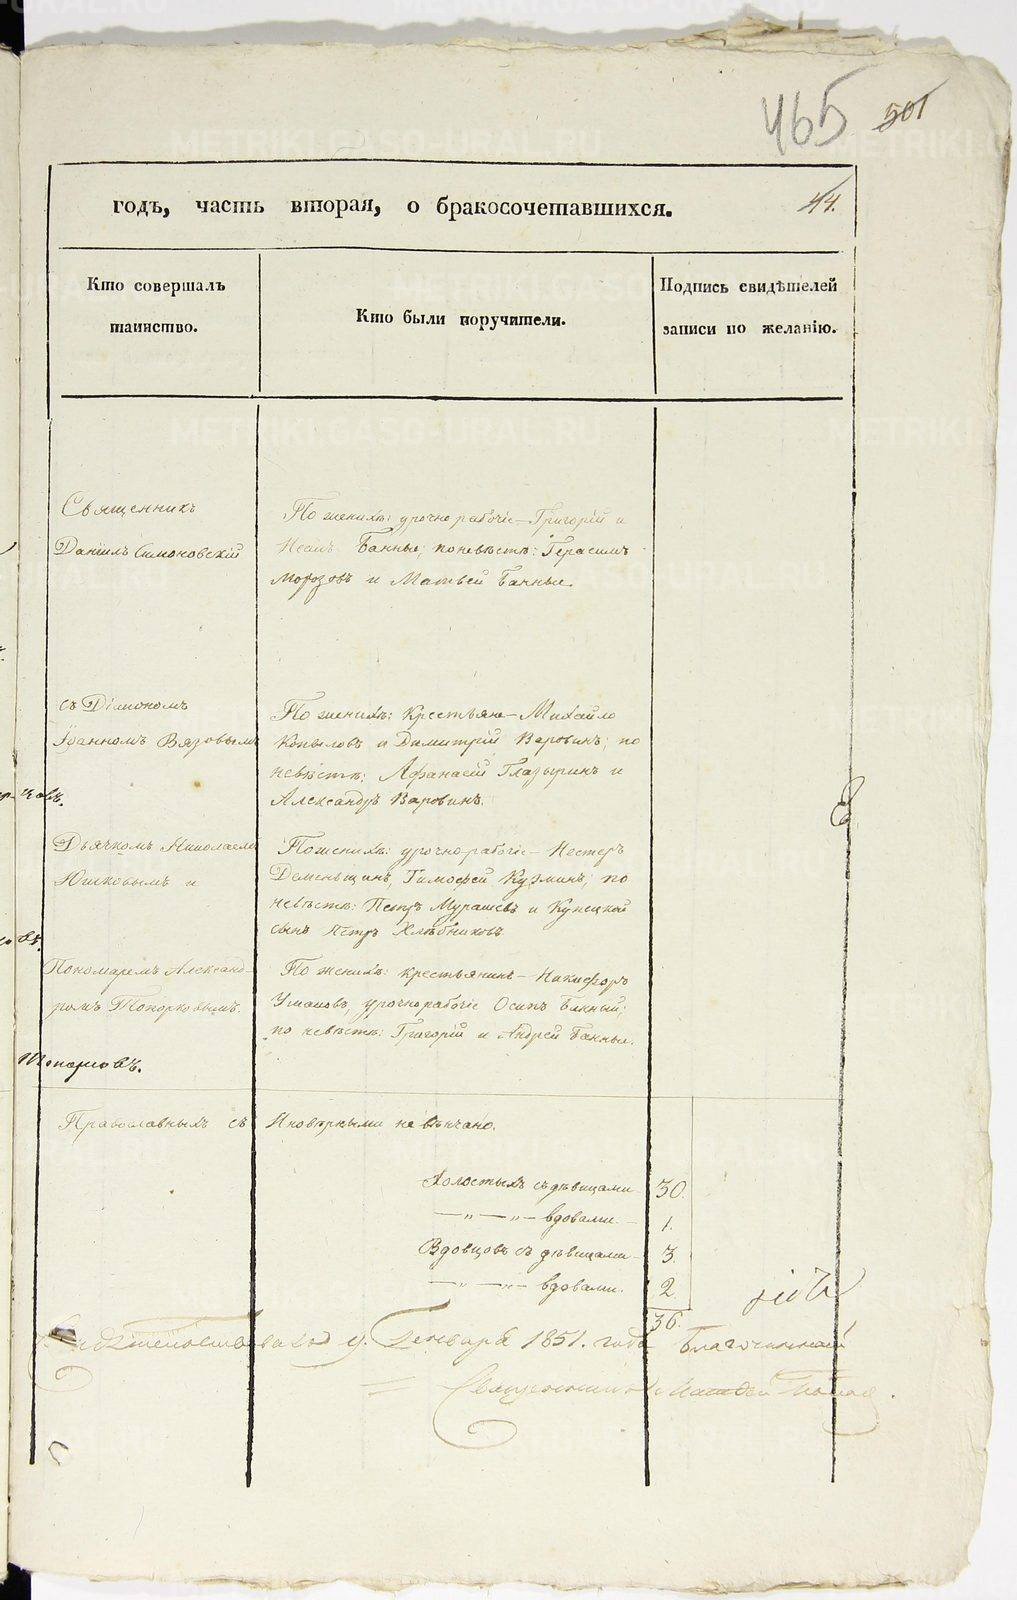 465 501
годъ, часть вторая, о бракосочетавшихся.
44.
Кто совершалъ
таинство.
Кто были поручители.
Подпись свидѣтелей
записи по желанію.
Священникъ
Даніилъ Симоновскій
По женихѣ: урочнорабочіе – Григорій и
Банные; по невѣстѣ: Герасимъ
Морозовъ и Матвей Банные.
съ Діакономъ
Іоанномъ Вязовымъ
По женихѣ: Крестьяне – Михайло
Копыловъ и Димитрій Варовинъ; по
невѣстѣ: Афанасій Глазыринъ и
Александръ Варовинъ.
Дьячкомъ Николаемъ
Юшковымъ и
По женихѣ: урочнорабочіе – Нестеръ
Деменьщинъ, Тимофей Кузминъ; по
невѣстѣ: Петръ Мурашевъ и Купецкой
сынъ Петръ Хлѣбниковъ
Пономаремъ Александ-
ромъ Топорковымъ.
По женихѣ: крестьянинъ – Никифоръ
Ушаковъ, урочнорабочіе Осипъ Банный;
по невѣстѣ: Григорій и Андрей Банные.
Православныхъ съ Иновѣрными не вѣнчано.
Холостыхъ съ дѣвицами 30.
— „ — „ — вдовами. – 1.
Вдовцовъ съ дѣвицами – 3.
— „ — „ — вдовами. 2.
36.
Свидетельствовалъ 9. Генваря 1851. года Благочинный
Священникъ
METRIKI.GASO-URAL.RU